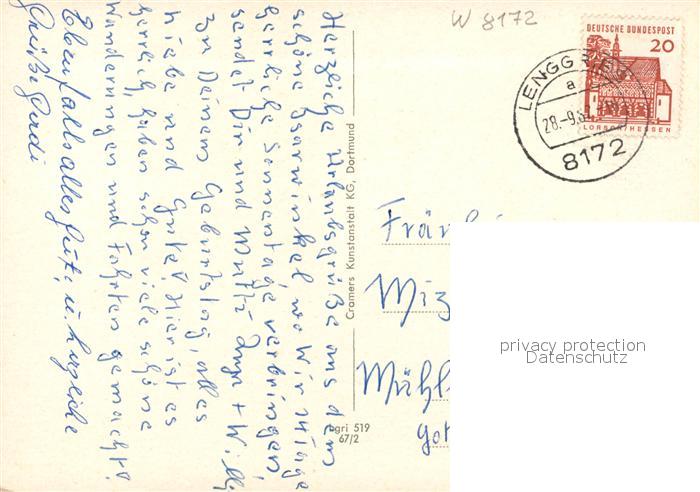 W 8172
DEUTSCHE BUNDESPOST
20
LORSCH/HESSEN
LENGGRIES
a
28.-9.6
8172
Herzliche Urlaubsgrüße aus dem
schöne Isarwinkel, wo wir einige
herrliche Sonnentage verbringen,
sendet Dir und Mutti Inge + Willy
Zu Deinem Geburtstag, alles
Liebe und Gute! Hier ist es
herrlich, haben schon viele schöne
Wanderungen und Fahrten gemacht!
Ebenfalls alles Gute u. herzliche
Grüße Gerdi
Cramers Kunstanstalt KG, Dortmund
519
67/2
Miz
Mühl
Got
privacy protection
Datenschutz